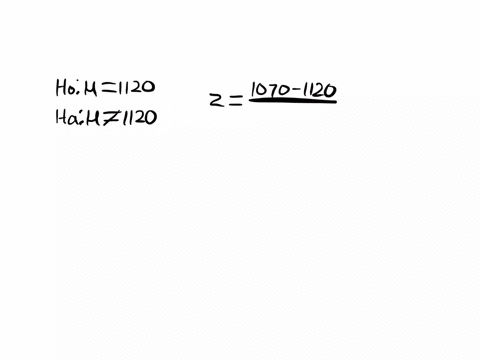 Ho: μ = 1120
Ha: μ ≠ 1120
z = 1070-1120